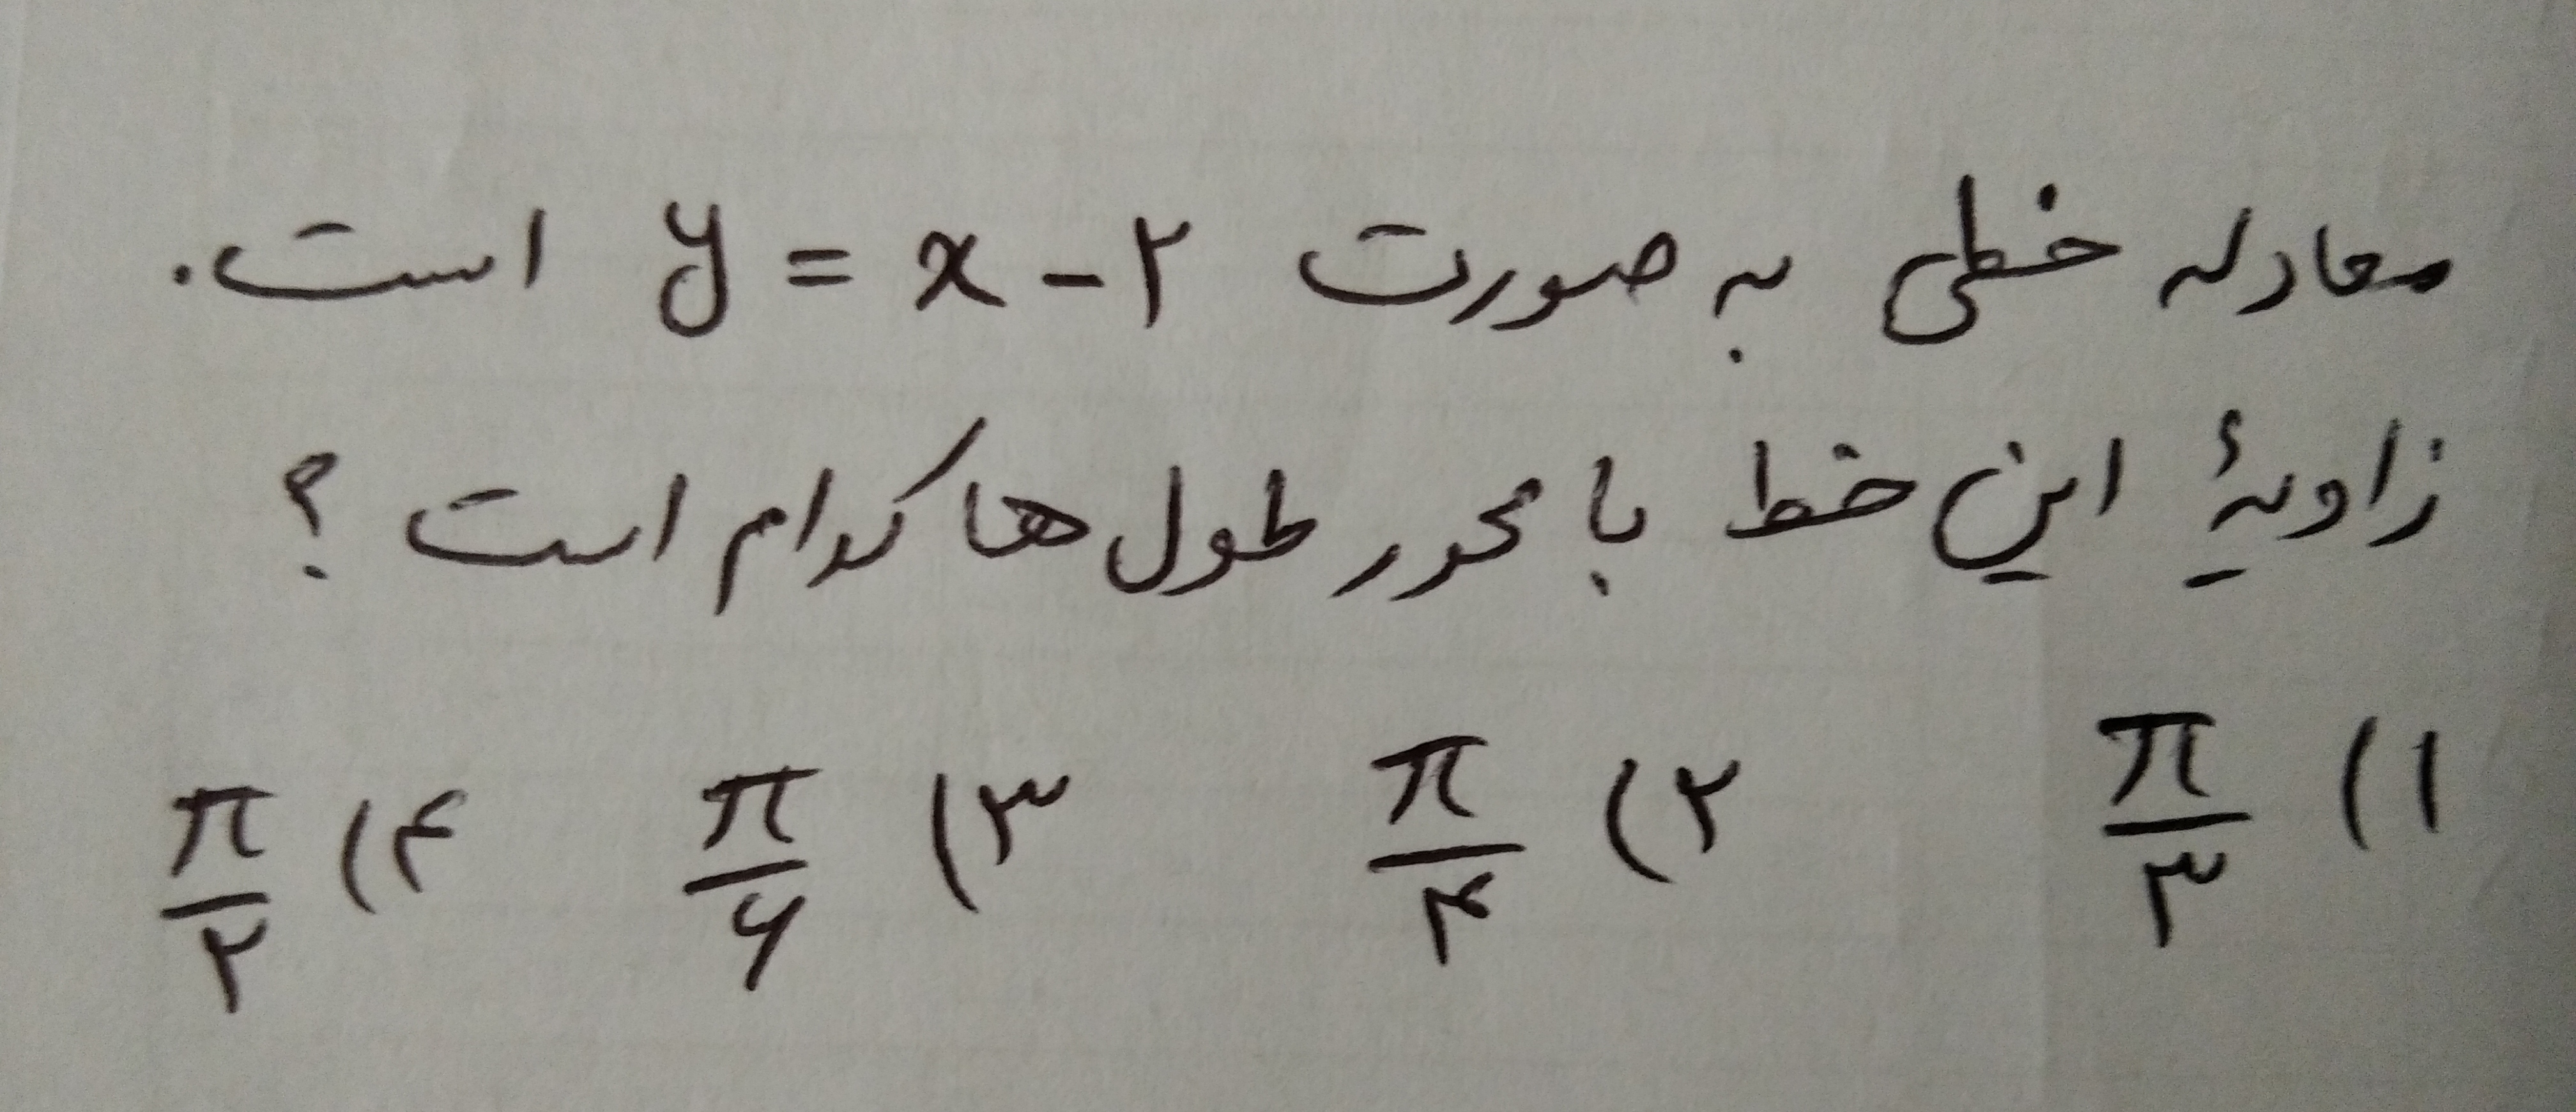 معادله خطی به صورت y = x - ۲ است.
زاویهٔ این خط با محور طول ها کدام است ؟
۱) π/۳ ۲) π/۴ ۳) π/۶ ۴) π/۲